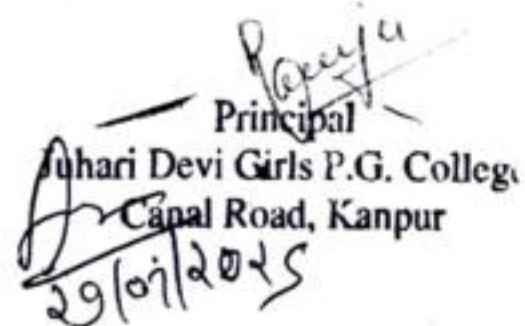 Principal
Juhari Devi Girls P.G. College
Canal Road, Kanpur
29/01/2025